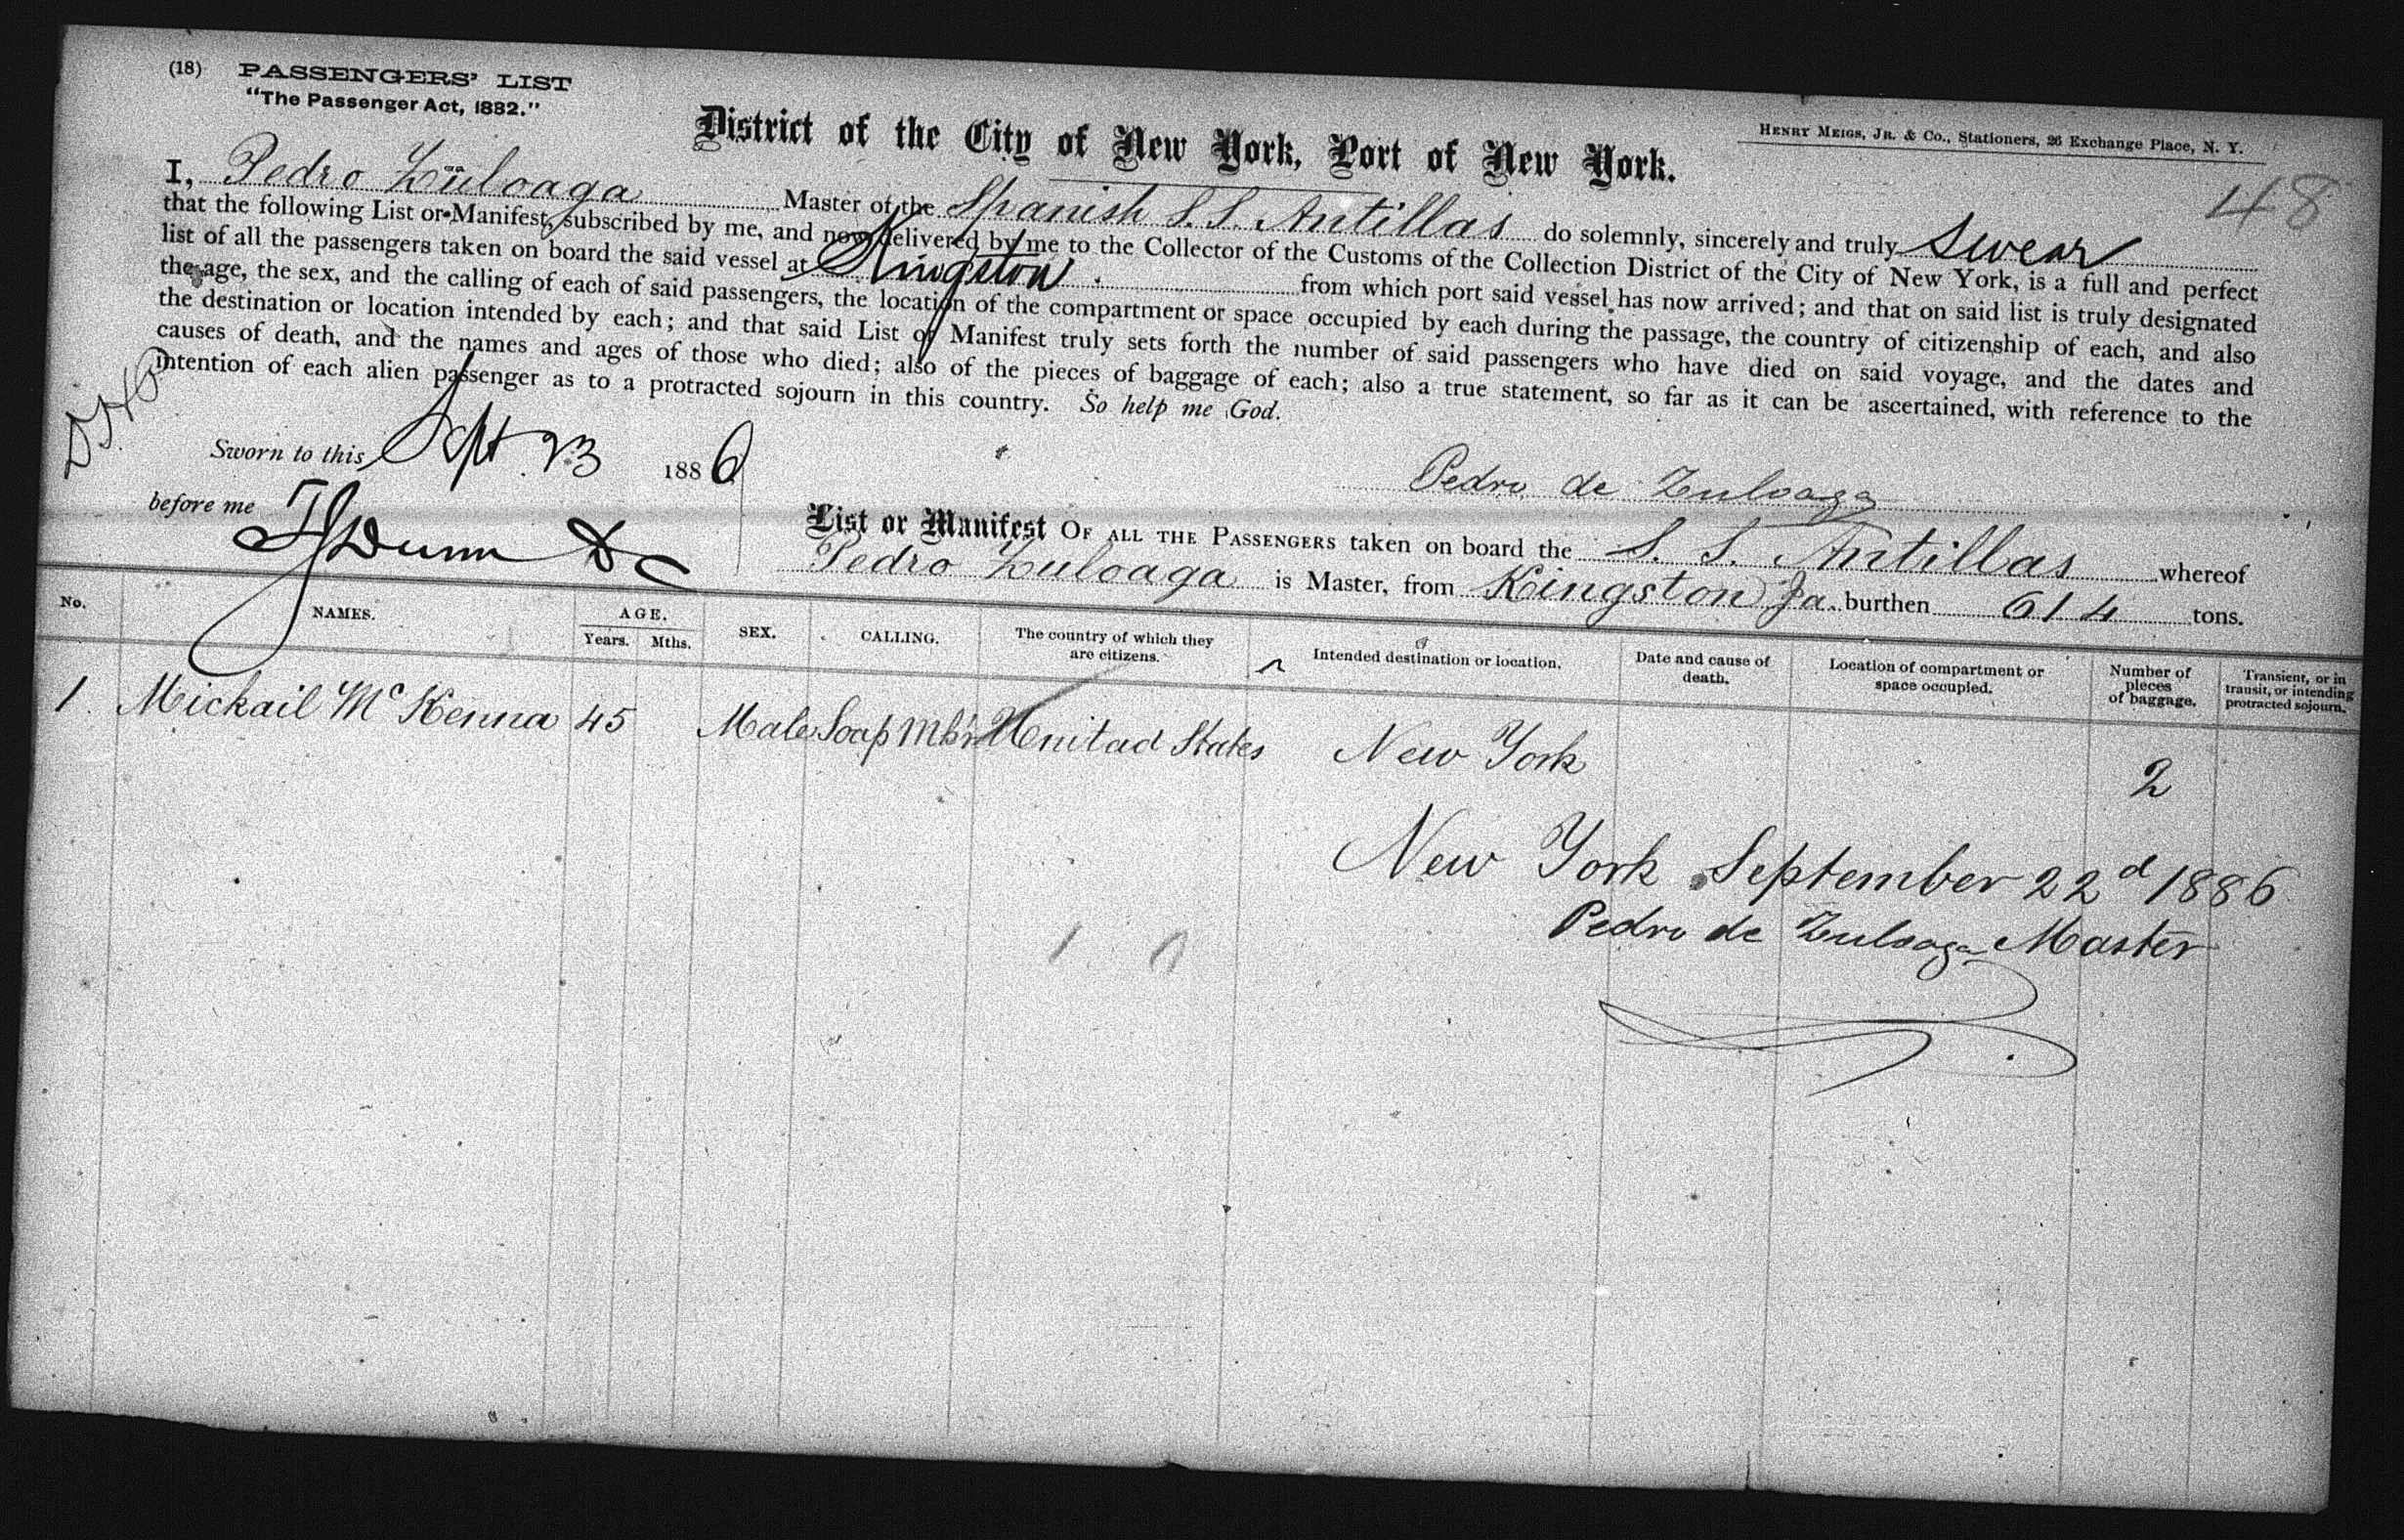 (18) PASSENGERS' LIST
"The Passenger Act, 1882."
District of the City of New York, Port of New York.
HENRY MEIGS, JR. & CO., Stationers, 26 Exchange Place, N. Y.
48
I, Pedro Zuloaga Master of the Spanish S.S. Antillas do solemnly, sincerely and truly swear
that the following List or Manifest, subscribed by me, and now delivered by me to the Collector of the Customs of the Collection District of the City of New York, is a full and perfect
list of all the passengers taken on board the said vessel at Kingston from which port said vessel has now arrived; and that on said list is truly designated
the age, the sex, and the calling of each of said passengers, the location of the compartment or space occupied by each during the passage, the country of citizenship of each, and also
the destination or location intended by each; and that said List or Manifest truly sets forth the number of said passengers who have died on said voyage, and the dates and
causes of death, and the names and ages of those who died; also of the pieces of baggage of each; also a true statement, so far as it can be ascertained, with reference to the
intention of each alien passenger as to a protracted sojourn in this country. So help me God.
Sworn to this Sept 23 1886
Pedro de Zuloaga
before me
Dunn DC
List or Manifest OF ALL THE PASSENGERS taken on board the S. S. Antillas whereof
Pedro Zuloaga is Master, from Kingston Ja. burthen 614 tons.
No. NAMES. AGE. Years. Mths. SEX. CALLING. The country of which they are citizens. Intended destination or location. Date and cause of death. Location of compartment or space occupied. Number of pieces of baggage. Transient, or in transit, or intending protracted sojourn.
1. Mickail McKenna 45 Male Soap Mk'r Unitad States New York 2
New York September 22d 1886
Pedro de Zuloaga Master
1 0